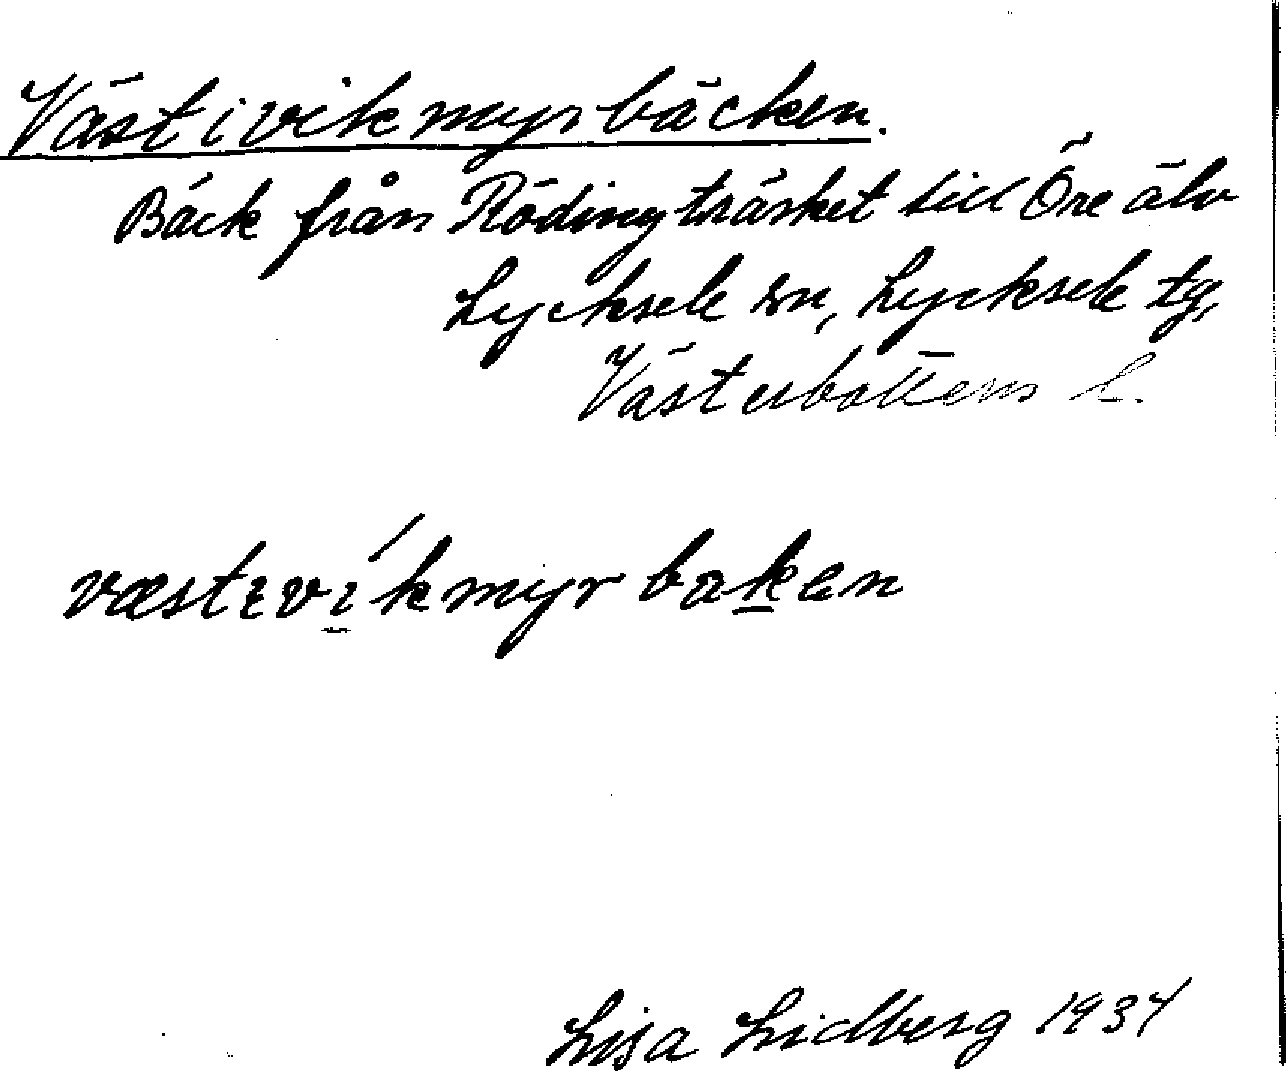 Västivikmyrbäcken.
Bäck från Rödingträsket till Öre älv
Lycksele sn, Lycksele tg,
Västerbottens l.
væstɩvíkmyrbaken
Lisa Lidberg 1934